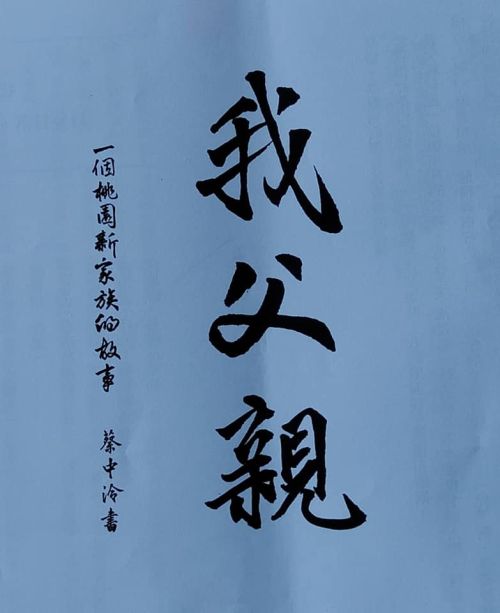 我父親
一個桃園新家族的故事
蔡中泠書